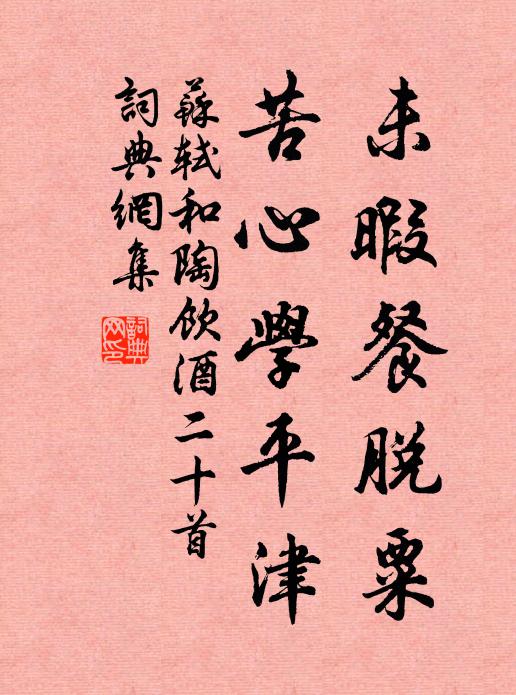 未暇餐脫粟
苦心學平津
蘇軾和陶飲酒二十首
詞典網集
詞典网印